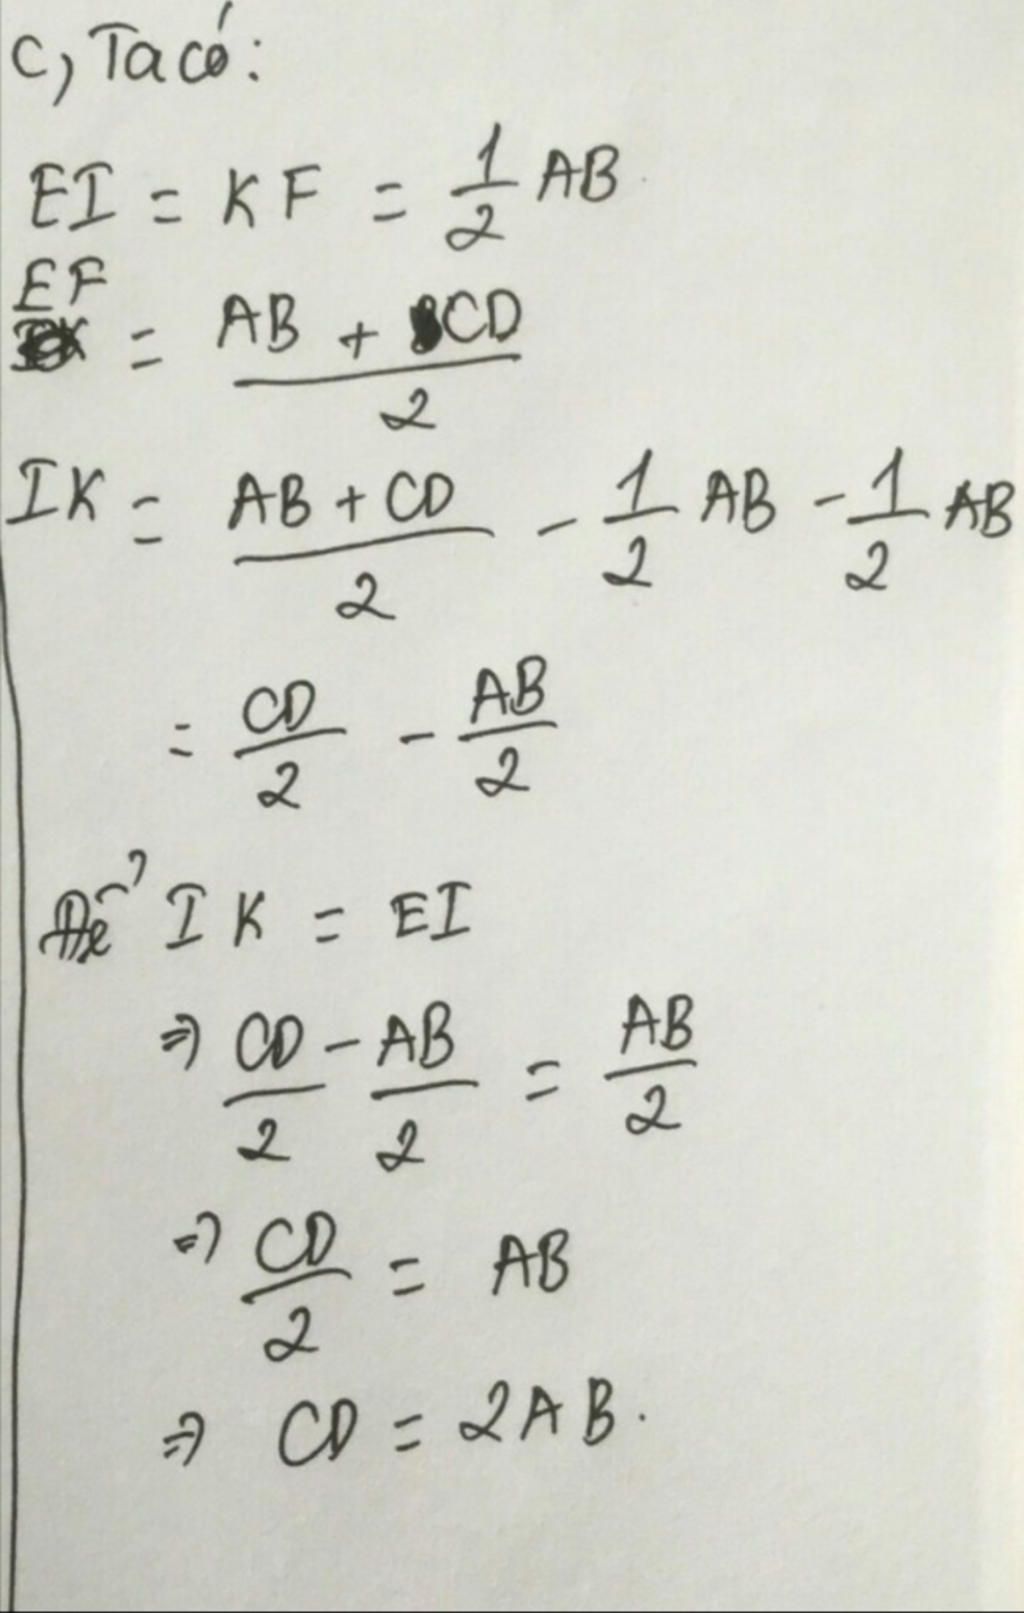 c, Ta có:
EI = KF = 1/2 AB
EF = (AB + CD)/2
IK = (AB + CD)/2 - 1/2 AB - 1/2 AB
= CD/2 - AB/2
Để IK = EI
=> CD/2 - AB/2 = AB/2
=> CD/2 = AB
=> CD = 2AB.